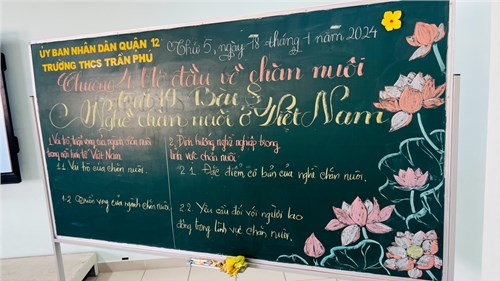 ỦY BAN NHÂN DÂN QUẬN 12
TRƯỜNG THCS TRẦN PHÚ
Thứ 5, ngày 18 tháng 1 năm 2024
Chương 4. Mở đầu về chăn nuôi
Bài 8
Nghề chăn nuôi ở Việt Nam
1. Vai trò, triển vọng của ngành chăn nuôi
trong nền kinh tế Việt Nam
1.1. Vai trò của chăn nuôi.
1.2. Triển vọng của ngành chăn nuôi.
2. Định hướng nghề nghiệp trong
lĩnh vực chăn nuôi
2.1. Đặc điểm cơ bản của nghề chăn nuôi.
2.2. Yêu cầu đối với người lao
động trong lĩnh vực chăn nuôi.